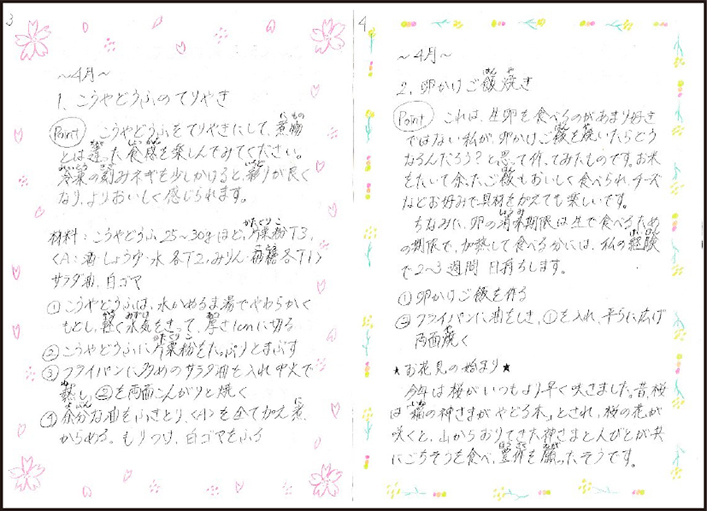 3
～4月～
1. こうやどうふのてりやき
Point こうやどうふをてりやきにして、煮物
とは違った食感を楽しんでみてください。
冷凍の刻みネギを少しかけると、彩りが良く
なり、よりおいしく感じられます。
材料：こうやどうふ25～30gほど、片栗粉T3、
〈A：酒・しょうゆ・水 各T2、みりん・砂糖 各T1〉
サラダ油、白ゴマ
① こうやどうふは、水かぬるま湯でやわらかく
もどし、軽く水気をきって、厚さ1cmに切る
② こうやどうふに片栗粉をたっぷりとまぶす
③ フライパンに多めのサラダ油を入れ中火で
熱し、②を両面こんがりと焼く
④ 余分な油をふきとり、〈A〉を全て加え煮
からめる。もりつけ、白ゴマをふる
4
～4月～
2. 卵かけご飯焼き
Point これは、生卵を食べるのがあまり好き
ではない私が、卵かけご飯を焼いたらどう
なるんだろう?と思って作ってみたものです。お米
をたいて余ったご飯もおいしく食べられ、チーズ
などお好みで具材をかえても楽しいです。
ちなみに、卵の消費期限は生で食べるため
の期限で、加熱して食べる分には、私の経験
で2～3週間 日持ちします。
① 卵かけご飯を作る
② フライパンに油をしき、①を入れ、平らに広げ
両面焼く
★お花見の始まり★
今年は桜がいつもより早く咲きました。昔、桜
は「稲の神さまがやどる木」とされ、桜の花が
咲くと、山からおりてきた神さまと人びとが共
にごちそうを食べ、豊作を願ったそうです。